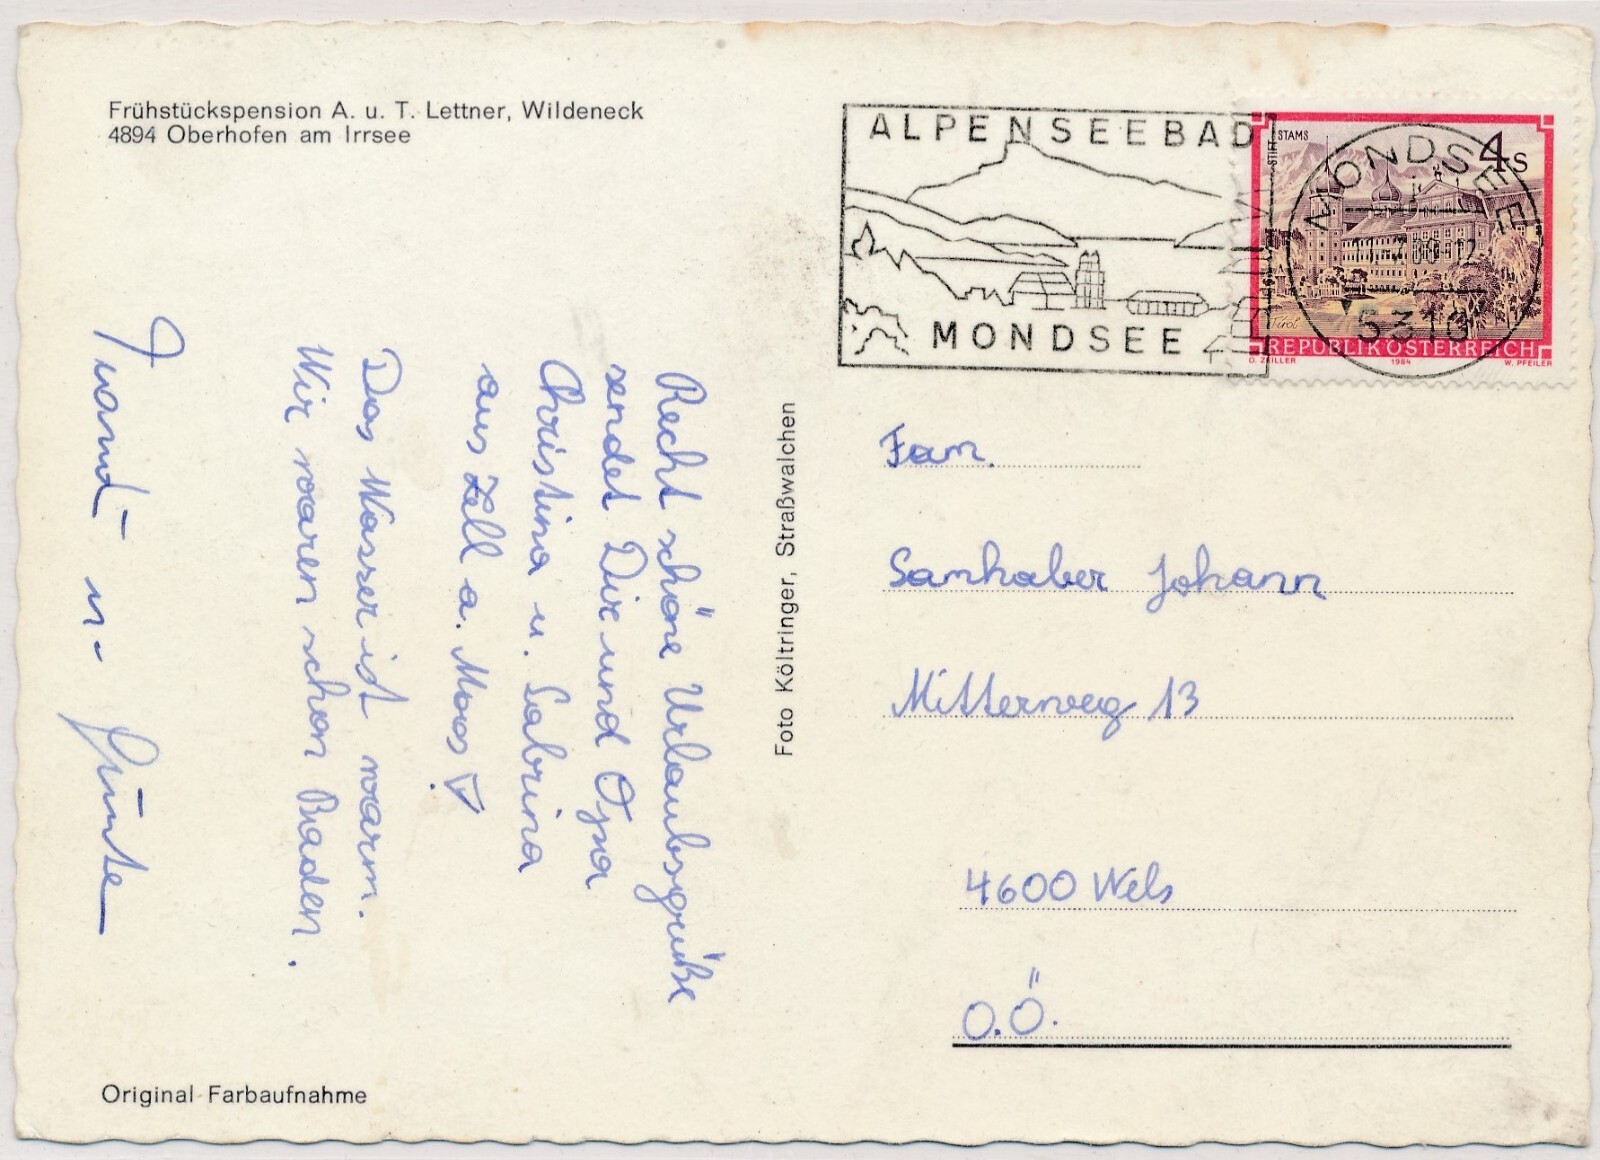 Frühstückspension A. u. T. Lettner, Wildeneck
4894 Oberhofen am Irrsee
Recht schöne Urlaubsgrüße
sendet Dir und Opa
Christina u. Sabrina
aus Zell a. Moos!
Das Wasser ist warm.
Wir waren schon Baden.
u.
Original Farbaufnahme
Foto Költringer, Straßwalchen
ALPENSEEBAD
MONDSEE
MONDSEE
5310
STIFT STAMS
4s
Tirol
REPUBLIK ÖSTERREICH
O. ZEILLER 1984 W. PFEILER
Fam.
Samhaber Johann
Mitterweg 13
4600 Wels
O.Ö.